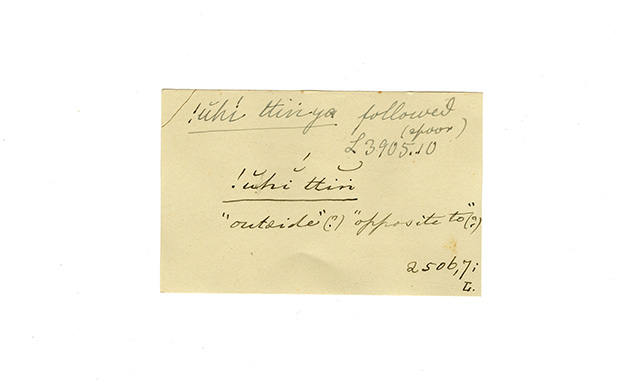 !ŭhí ttin ya followed
(spoor)
L 3905.10
!ŭhĭ ttĭn
"outside" (?) "opposite to" (?)
2506,7;
L.